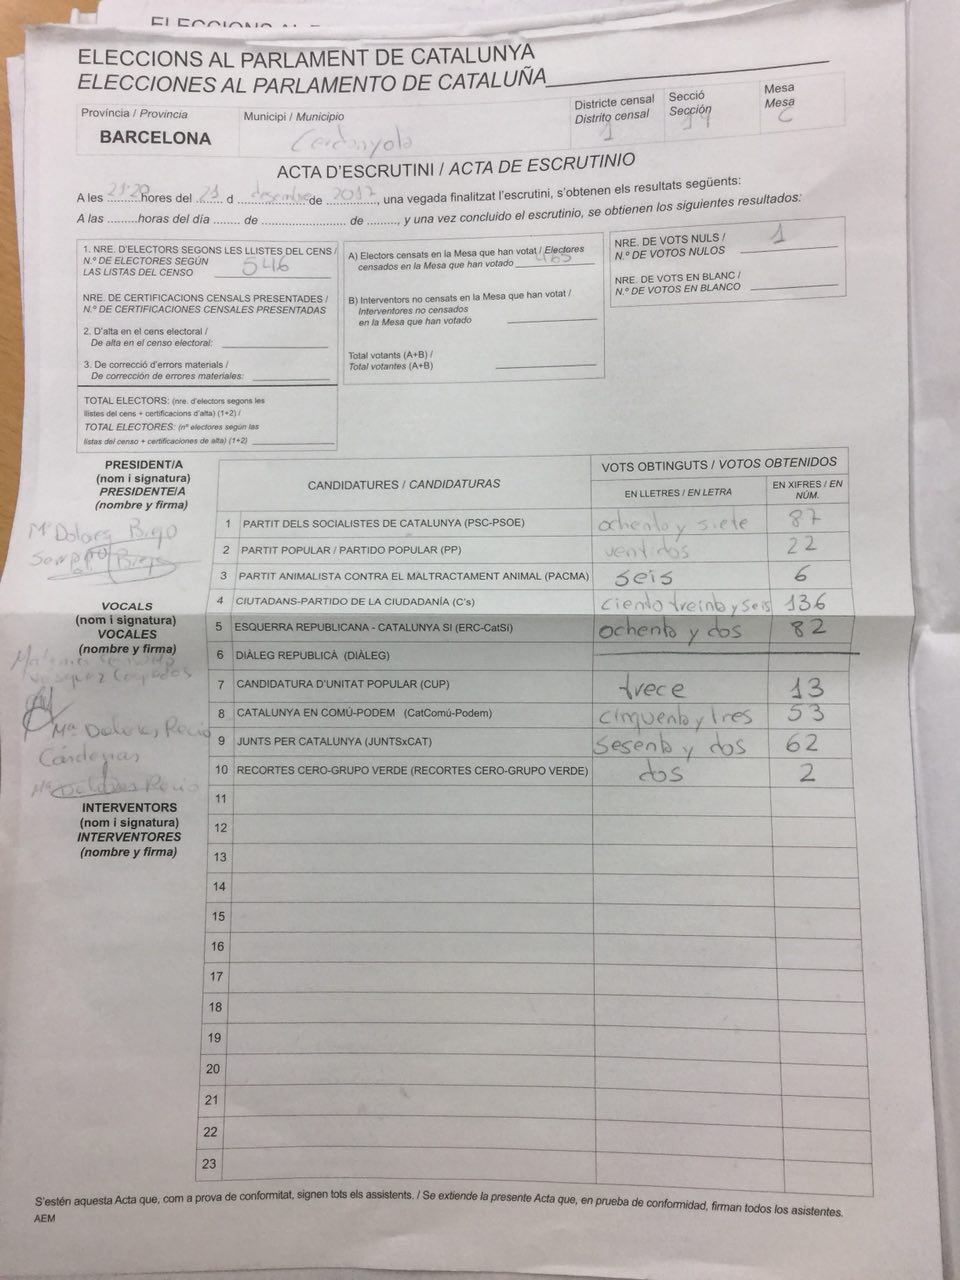 ELECCIONS AL PARLAMENT DE CATALUNYA
ELECCIONES AL PARLAMENTO DE CATALUÑA
Província / Provincia
BARCELONA
Municipi / Municipio
Cerdanyola
Districte censal
Distrito censal
1
Secció
Sección
19
Mesa
Mesa
C
ACTA D'ESCRUTINI / ACTA DE ESCRUTINIO
A les 21'20 hores del 21 d desembre de 2017, una vegada finalitzat l'escrutini, s'obtenen els resultats següents:
A las .........horas del día ....... de ........................... de ........, y una vez concluido el escrutinio, se obtienen los siguientes resultados:
1. NRE. D'ELECTORS SEGONS LES LLISTES DEL CENS /
N.º DE ELECTORES SEGÚN
LAS LISTAS DEL CENSO 546
NRE. DE CERTIFICACIONS CENSALS PRESENTADES /
N.º DE CERTIFICACIONES CENSALES PRESENTADAS
2. D'alta en el cens electoral /
De alta en el censo electoral:
3. De correcció d'errors materials /
De corrección de errores materiales:
TOTAL ELECTORS: (nre. d'electors segons les
llistes del cens + certificacions d'alta) (1+2) /
TOTAL ELECTORES: (nº electores según las
listas del censo + certificaciones de alta) (1+2)
A) Electors censats en la Mesa que han votat / Electores
censados en la Mesa que han votado 465
B) Interventors no censats en la Mesa que han votat /
Interventores no censados
en la Mesa que han votado
Total votants (A+B) /
Total votantes (A+B)
NRE. DE VOTS NULS /
N.º DE VOTOS NULOS 1
NRE. DE VOTS EN BLANC /
N.º DE VOTOS EN BLANCO
PRESIDENT/A
(nom i signatura)
PRESIDENTE/A
(nombre y firma)
Mª Dolores Bigo
VOCALS
(nom i signatura)
VOCALES
(nombre y firma)
Mª Dolores Recio
Cárdenas
Mª Dolores Recio
INTERVENTORS
(nom i signatura)
INTERVENTORES
(nombre y firma)
CANDIDATURES / CANDIDATURAS
VOTS OBTINGUTS / VOTOS OBTENIDOS
EN LLETRES / EN LETRA
EN XIFRES / EN NÚM.
1 PARTIT DELS SOCIALISTES DE CATALUNYA (PSC-PSOE) ochenta y siete 87
2 PARTIT POPULAR / PARTIDO POPULAR (PP) ventidos 22
3 PARTIT ANIMALISTA CONTRA EL MALTRACTAMENT ANIMAL (PACMA) seis 6
4 CIUTADANS-PARTIDO DE LA CIUDADANÍA (C's) ciento treinta y seis 136
5 ESQUERRA REPUBLICANA - CATALUNYA SÍ (ERC-CatSí) ochenta y dos 82
6 DIÀLEG REPUBLICÀ (DIÀLEG)
7 CANDIDATURA D'UNITAT POPULAR (CUP) trece 13
8 CATALUNYA EN COMÚ-PODEM (CatComú-Podem) cinquenta y tres 53
9 JUNTS PER CATALUNYA (JUNTSxCAT) sesenta y dos 62
10 RECORTES CERO-GRUPO VERDE (RECORTES CERO-GRUPO VERDE) dos 2
11
12
13
14
15
16
17
18
19
20
21
22
23
S'estén aquesta Acta que, com a prova de conformitat, signen tots els assistents. / Se extiende la presente Acta que, en prueba de conformidad, firman todos los asistentes.
AEM